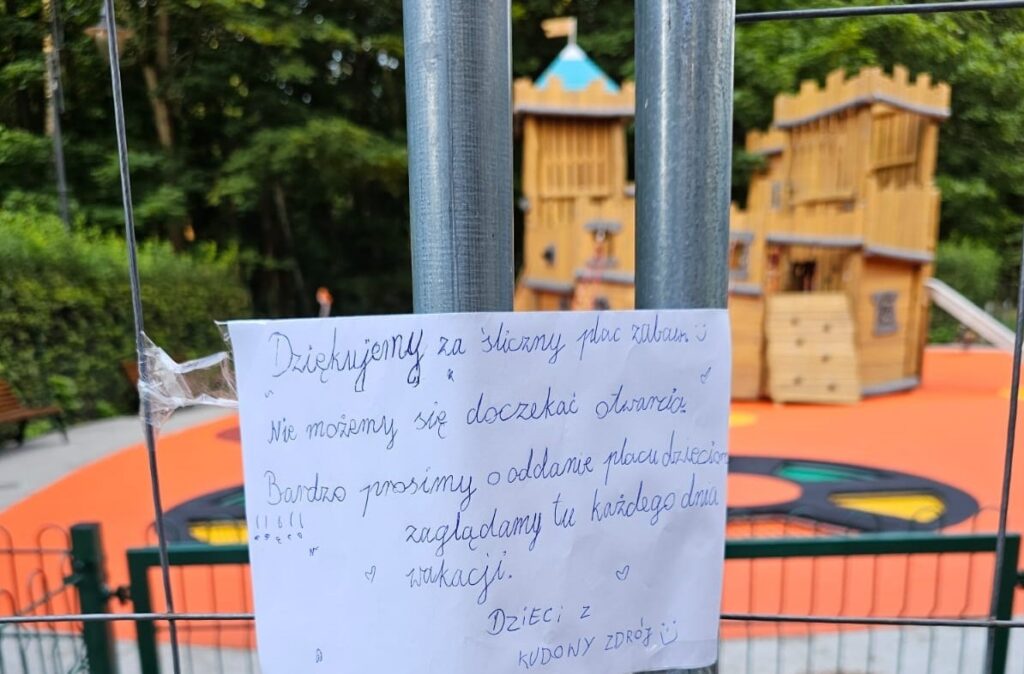 Dziękujemy za śliczny plac zabaw
Nie możemy się doczekać otwarcia.
Bardzo prosimy o oddanie placu dzieciom
zaglądamy tu każdego dnia
wakacji.
DZIECI Z
KUDOWY ZDRÓJ